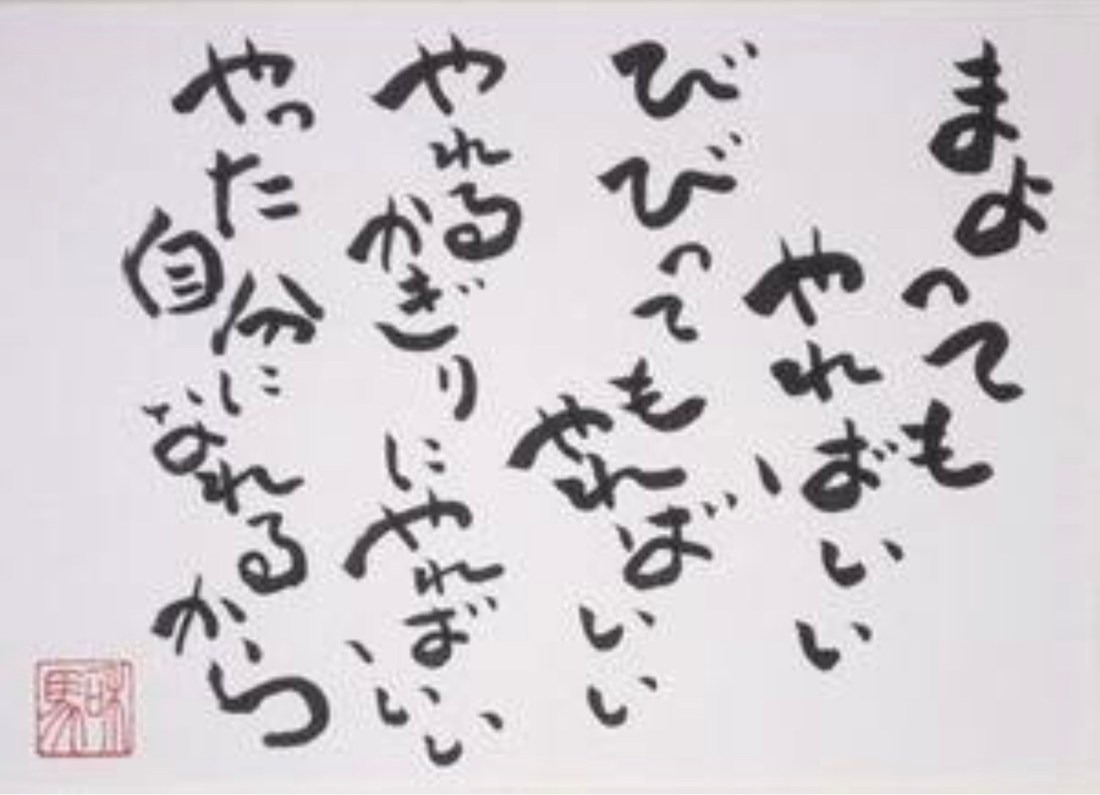 まよっても
やればいい
びびっても
やればいい
やれるかぎり
にやればいい
やった自分に
なれるから